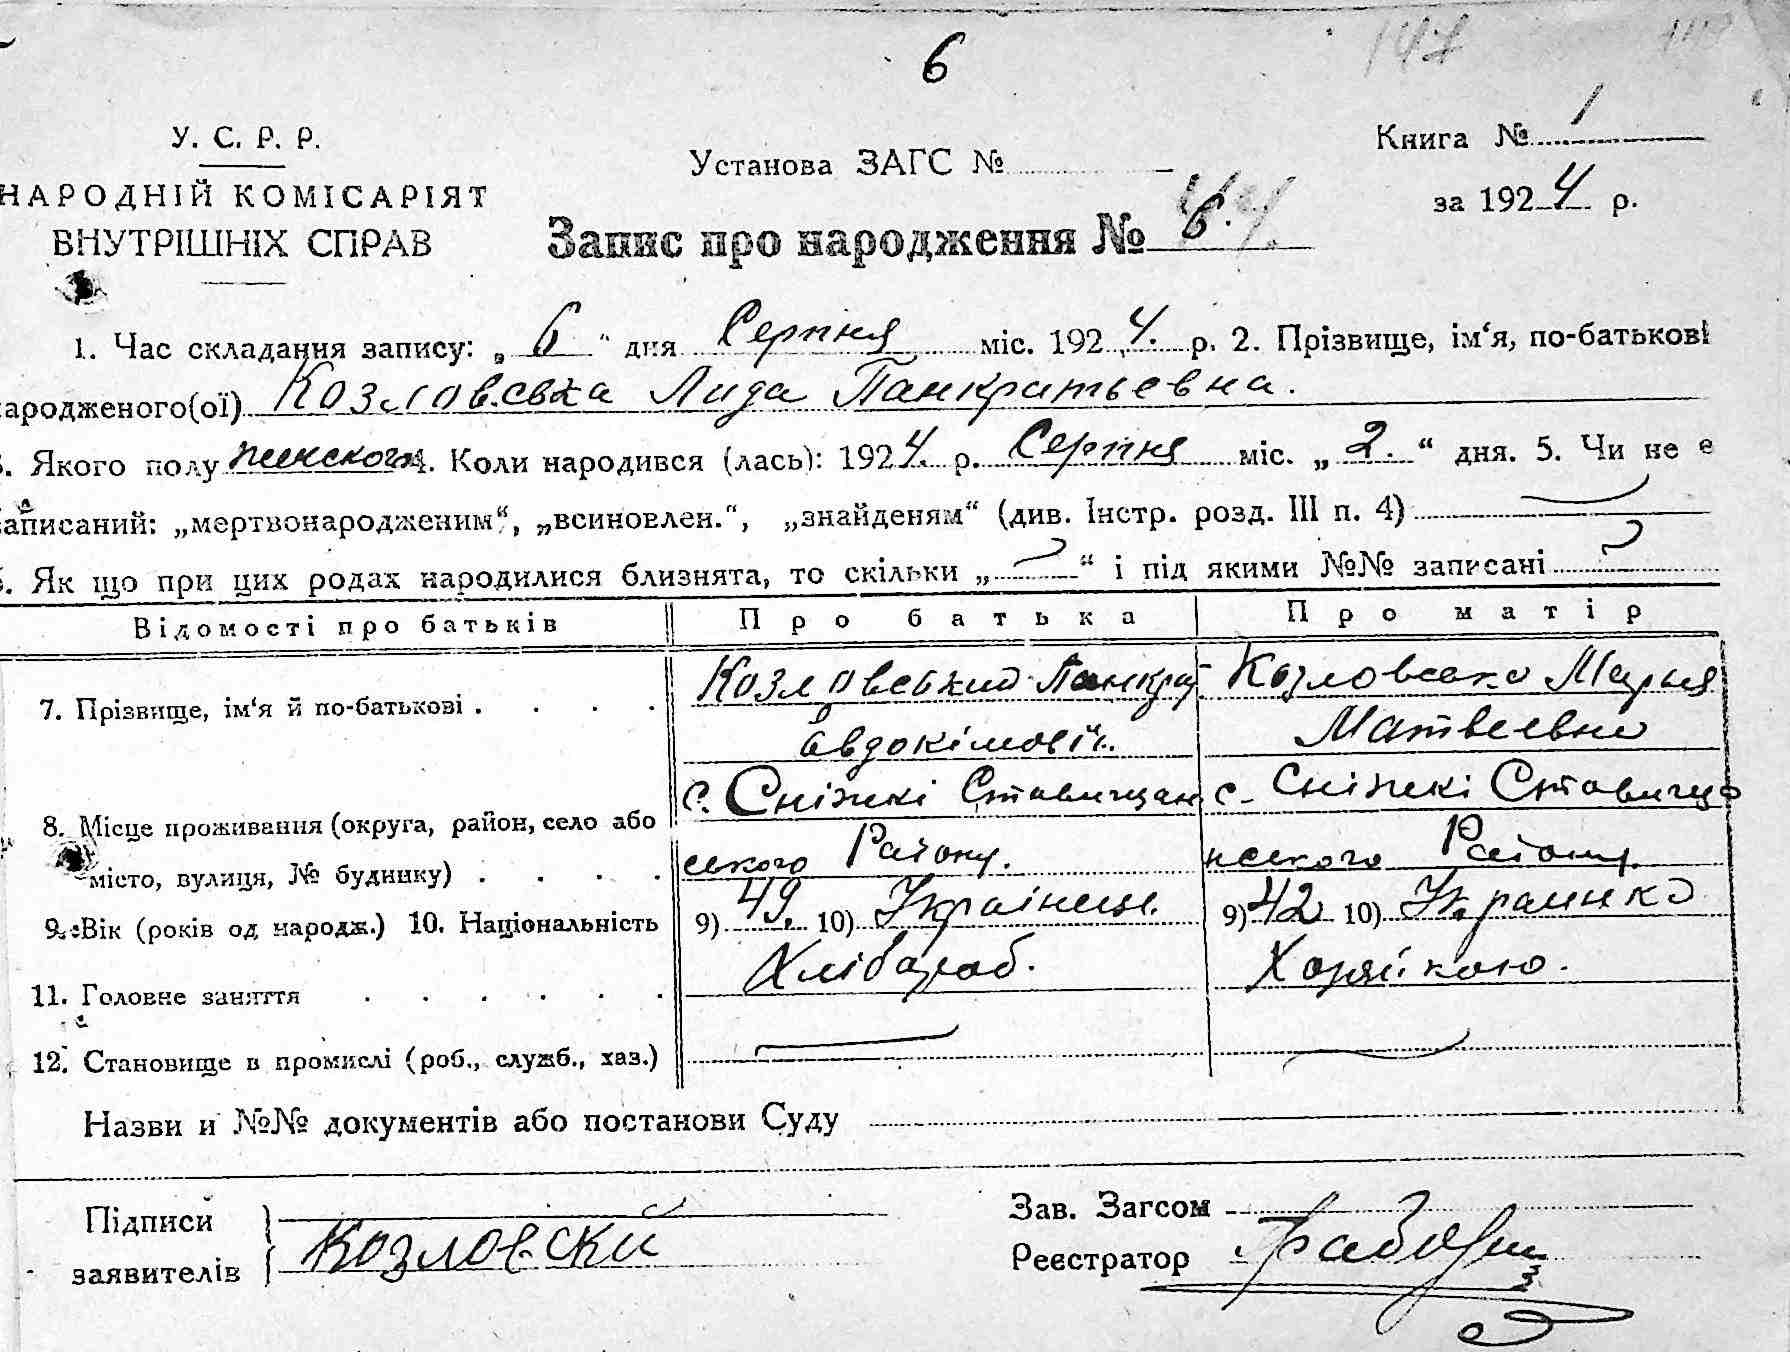 6
147
У. С. Р. Р.
НАРОДНІЙ КОМІСАРІЯТ
ВНУТРІШНІХ СПРАВ
Установа ЗАГС №
Запис про народження № 6.
Книга № 1
за 1924 р.
1. Час складання запису: „ 6 “ дня Серпня міс. 1924. р. 2. Прізвище, ім‘я, по-батькові
ародженого(ої) Козловська Лида Панкратьевна.
. Якого полу женского 4. Коли народився (лась): 1924. р. Серпня міс. „ 2. “ дня. 5. Чи не є
аписаний: „мертвонародженим“, „всиновлен.“, „знайденям“ (див. Інстр. розд. III п. 4)
. Як що при цих родах народилися близнята, то скільки „ “ і під якими №№ записані
Відомості про батьків Про батька Про матір
7. Прізвище, ім‘я й по-батькові . . . . Козловський Панкрат Козловська Мария
Овдокімовіч. Матвеевна
8. Місце проживання (округа, район, село або с. Сніжкі Ставищан с. Сніжкі Ставища
місто, вулиця, № будинку) . . . . ського Району. нського Району.
9. Вік (років од народж.) 10. Національність 9) 49. 10) Українець. 9) 42 10) Украинка
11. Головне заняття . . . . . . Хлібороб. Хозяйкою.
12. Становище в промислі (роб., служб., хаз.)
Назви и №№ документів або постанови Суду
Підписи
заявителів
Козловский
Зав. Загсом
Реєстратор